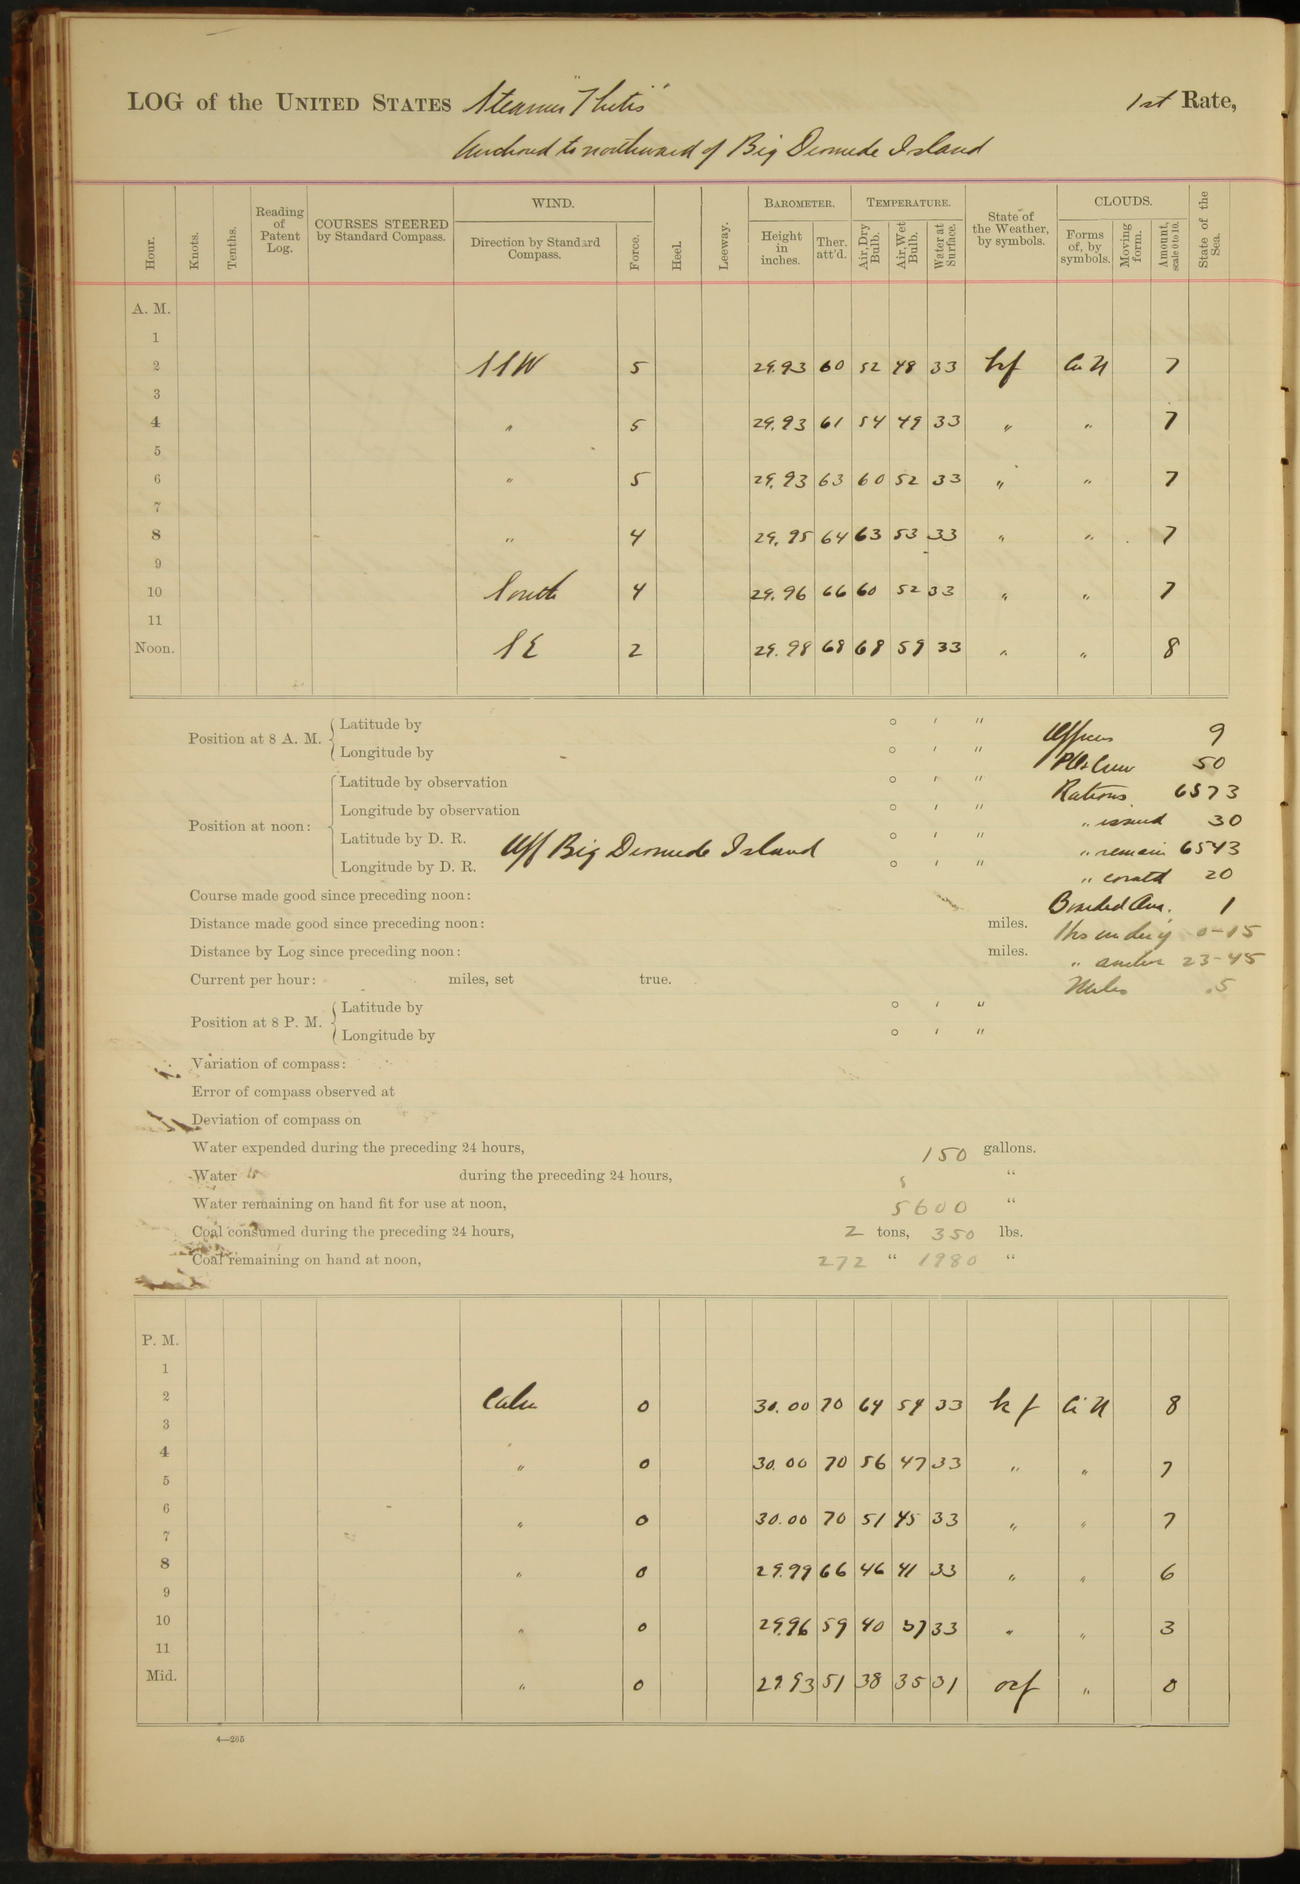 LOG of the UNITED STATES Steamer "Thetis" 1st Rate,
Anchored to northward of Big Diomede Island
Hour. Knots. Tenths. Reading of Patent Log. COURSES STEERED by Standard Compass. WIND. Direction by Standard Compass. Force. Heel. Leeway. BAROMETER. Height in inches. Ther. att'd. TEMPERATURE. Air, Dry Bulb. Air, Wet Bulb. Water at Surface. State of the Weather, by symbols. CLOUDS. Forms of, by symbols. Moving form. Amount, scale 0 to 10. State of the Sea.
A. M.
1
2 SSW 5 29.93 60 52 48 33 Cu N 7
3
4 " 5 29.93 61 54 49 33 " " 7
5
6 " 5 29.93 63 60 52 33 " " 7
7
8 " 4 29.95 64 63 53 33 " " 7
9
10 South 4 29.96 66 60 52 33 " " 7
11
Noon. SE 2 29.98 68 68 59 33 " " 8
Position at 8 A. M. Latitude by ° ' "
Longitude by ° ' "
Officers 9
Crew 50
Position at noon: Latitude by observation ° ' "
Rations 6573
Longitude by observation ° ' "
" issued 30
Latitude by D. R. Off Big Diomede Island ° ' "
" remain 6543
Longitude by D. R. ° ' "
" 20
Course made good since preceding noon:
Boarded 1
Distance made good since preceding noon: miles.
Hrs 0-15
Distance by Log since preceding noon: miles.
" anchor 23-45
Current per hour: miles, set true.
Miles .5
Position at 8 P. M. Latitude by ° ' "
Longitude by ° ' "
Variation of compass:
Error of compass observed at
Deviation of compass on
Water expended during the preceding 24 hours, 150 gallons.
Water during the preceding 24 hours, "
Water remaining on hand fit for use at noon, 5600 "
Coal consumed during the preceding 24 hours, 2 tons, 350 lbs.
Coal remaining on hand at noon, 272 " 1980 "
P. M.
1
2 Calm 0 30.00 70 64 54 33 Ci N 8
3
4 " 0 30.00 70 56 47 33 " " 7
5
6 " 0 30.00 70 51 45 33 " " 7
7
8 " 0 29.99 66 46 41 33 " " 6
9
10 " 0 29.96 59 40 37 33 " " 3
11
Mid. " 0 29.93 51 38 35 31 " 0
4—205